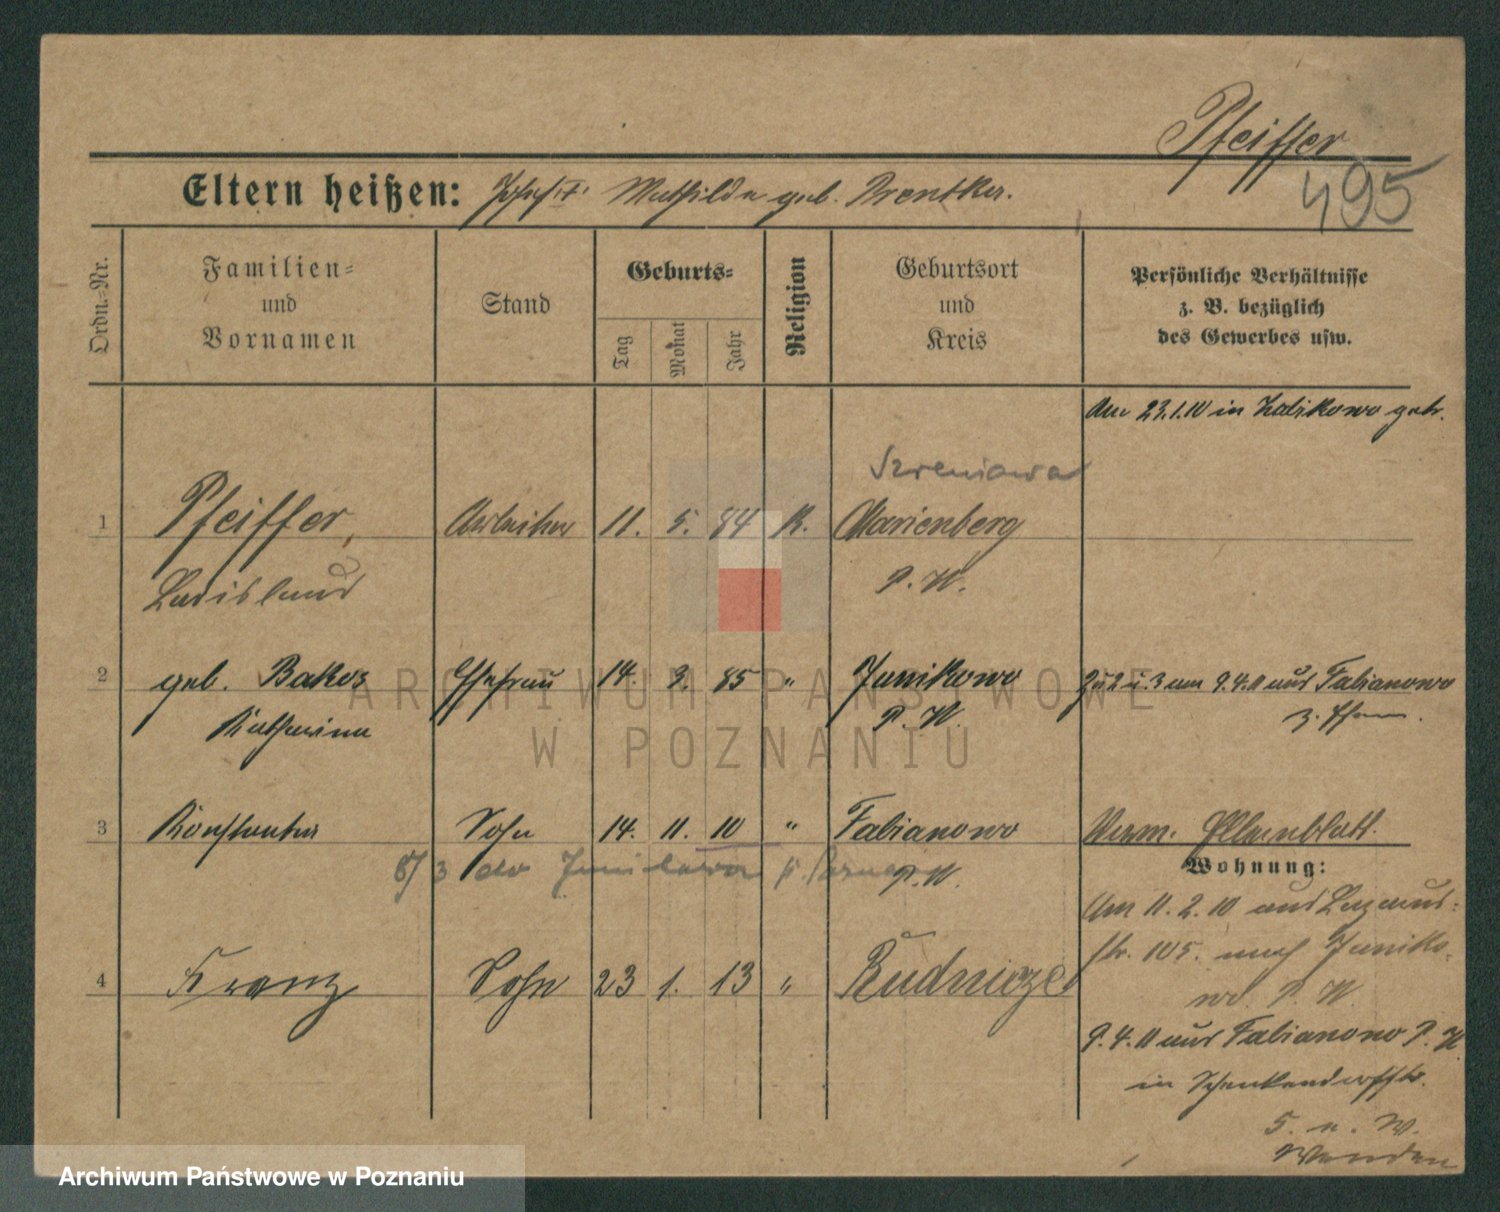 Pfeiffer
495
Eltern heißen: Joseph u. Mathilde geb. Brentker.
Ordn.-Nr.
Familien-
und
Vornamen
Stand
Geburts-
Tag
Monat
Jahr
Religion
Geburtsort
und
Kreis
Persönliche Verhältnisse
z. B. bezüglich
des Gewerbes usw.
Am 23.1.10 in Zabikowo getr.
Szreniawa
1 Pfeiffer, Arbeiter 11. 5. 84 K. Marienberg
Ladislaus P. W.
2 geb. Bakoz Ehefrau 14. 3. 85 " Junikowo Zu 2 u. 3 am 9.4.11 aus Fabianowo
Katharina P. W. z. Ehem.
3 Konstantin Sohn 14. 11. 10 " Fabianowo Verm. Elternblatt.
8/3 P. W.
Wohnung:
Am 11.2.10 aus Lazarus-
str. 105. nach Juniko-
wo. P. W.
4 Franz Sohn 23 1. 13 " Rudnicze
9.4.11 aus Fabianowo P. W.
in Schenkendorffstr.
5. n. W.
ARCHIWUM PAŃSTWOWE
W POZNANIU
Archiwum Państwowe w Poznaniu